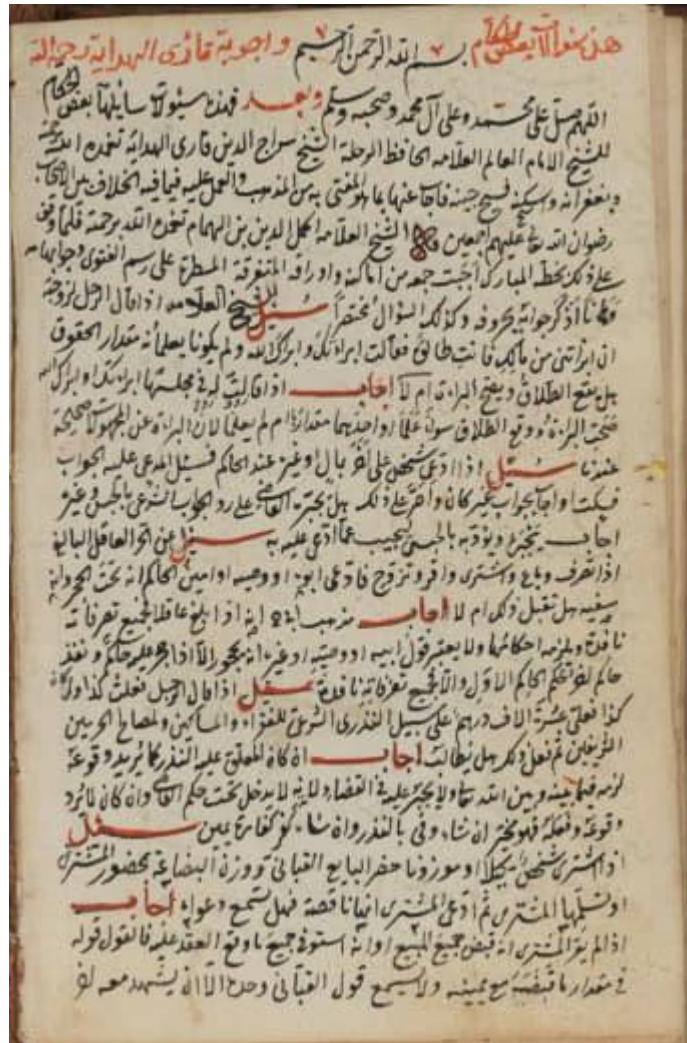 هذه سؤالات بعض الحكام بسم الله الرحمن الرحيم واجوبة قارئ الهداية رحمه الله
اللهم صل على محمد وعلى آل محمد وصحبه وسلم وبعد فهذه سئولات سايلها بعض الحكام
للشيخ الامام العالم العلامه الحافظ الرحلة الشيخ سراج الدين قارى الهداية تغمده الله برحمته
وبغفرانه واسكنه فسيح جنته فاجاب عنها بما هو المفتى به من المذهب والعمل عليه فيما فيه الخلاف من الاصحاب
رضوان الله تعا عليهم اجمعين الشيخ العلامه اكمل الدين بن الهمام تغمده الله برحمته فلما وقفت
على ذلك بخطه المبارك احببت جمعه من اماكنه واوراقه المتفرقة المسطرة على رسم الفتوى وجوابها
فها انا اذكر جوابه بحروفه وكذلك السؤال مختصرا سئل الشيخ العلامه اذا قال الرجل لزوجته
ان ابراتنى من مالك فانت طالق فقالت ابراءتك وابراك الله ولم يكونا يعلمان مقدار الحقوق
هل يقع الطلاق ويصح البراءة ام لا اجاب اذا قالت له في مجلسها ابراءتك او ابراك الله
صحت البراءة ووقع الطلاق سواء علما او احدهما مقداره ام لم يعلما لان البراءة عن المجهولات صحيحة
عندنا سئل اذا ادعى شخص على آخر بمال او غيره عند الحاكم فسئل المدعى عليه الجواب
فسكت او اجاب بجواب غير كاف واصر على ذلك هل يجبره القاضى على رد الجواب الشرعى بالحبس وغيره
اجاب يجبره ويؤدبه بالحبس ليجيب عما ادعى عليه به سئل عن الحر العاقل البالغ
اذا تصرف وباع واشترى واقر وتزوج فادعى ابوه او وصيه او امين الحاكم انه تحت الحجر وانه
سفيه هل تقبل ذلك ام لا اجاب مذهب انه اذا بلغ عاقلا فجميع تصرفاته
نافذة ويلزمه احكامها ولا يعتبر قول ابيه او وصيه او غيره انه محجور الا اذا حجر عليه حاكم ونفذ
حاكم اخر حكم الحاكم الاول والا فجميع تصرفاته نافذة سئل اذا قال الرجل ان فعلت كذا او كان
كذا فعلى عشرة آلاف درهم على سبيل النذر الشرعى للفقراء والمساكين ولمصالح الحرمين
الشريفين ثم فعل ذلك هل يطالب اجاب ان كان المعلق عليه النذر مما يريد وقوعه
لزمه فيما بينه وبين الله تعا ولا يجبر عليه في القضاء ولانه لا يدخل تحت حكم القاضى وان كان لا يرد
وقوعه وفعله فهو مخير ان شاء وفى بالنذر وان شاء كفر كفارة يمين سئل
اذا اشترى شخص مكيلا او موزونا حضر البايع القبانى ووزن البضاعة بحضور المشترى
او تسلمها المشترى ثم ادعى المشترى انها ناقصة فهل تسمع دعواه اجاب
اذا لم يقر المشترى انه قبض جميع المبيع او انه استوفى جميع ما وقع العقد عليه فالقول قوله
في مقدار ما قبضه مع يمينه ولا يسمع قول القبانى وحده الا ان يشهد معه اخر